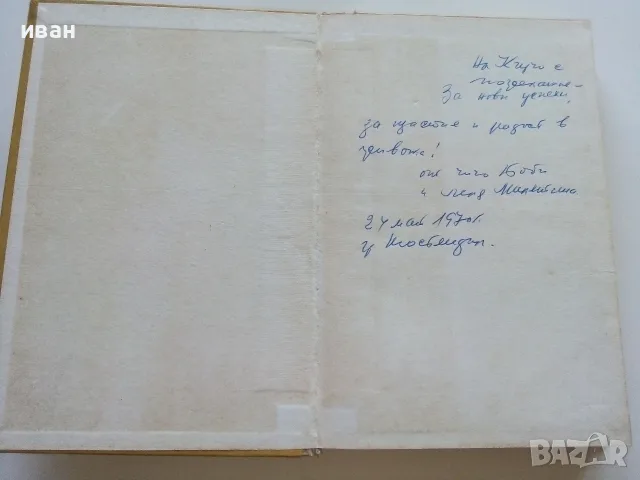 иван
На Кирчо с
пожелание -
За нови успехи,
за щастие и радост в
живота!
от чичо Боби
и леля
24 май 1970г.
гр Кюстендил.
BAZAR